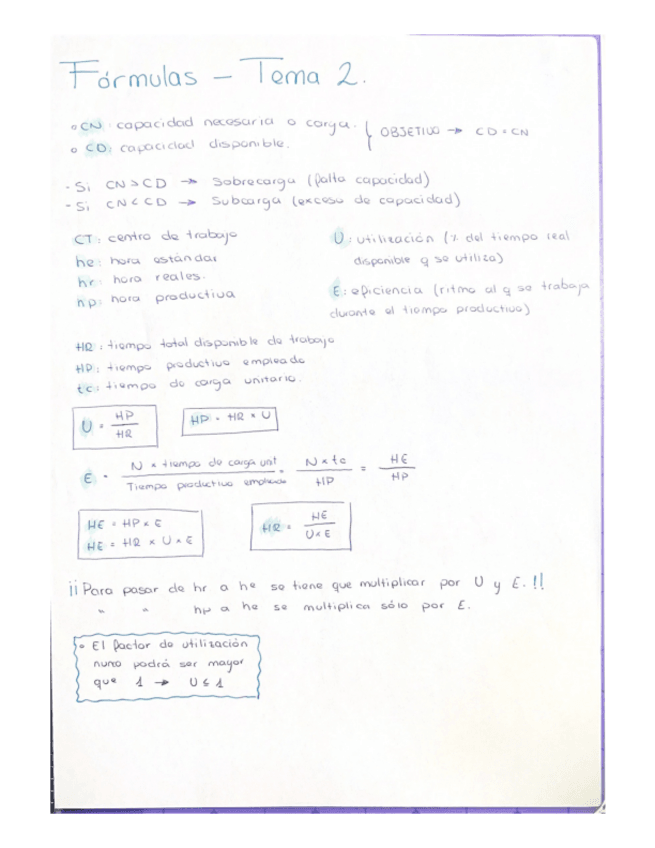 Fórmulas - Tema 2.
• CN: capacidad necesaria o carga.
• CD: capacidad disponible.
OBJETIVO → CD = CN
- Si CN > CD → Sobrecarga (falta capacidad)
- Si CN < CD → Subcarga (exceso de capacidad)
CT: centro de trabajo
he: hora estándar
hr: hora reales.
hp: hora productiva
U: utilización (% del tiempo real
disponible q se utiliza)
E: eficiencia (ritmo al q se trabaja
durante el tiempo productivo)
HR: tiempo total disponible de trabajo
HP: tiempo productivo empleado
tc: tiempo de carga unitario.
U = HP / HR
HP = HR × U
E = N × tiempo de carga unit / Tiempo productivo empleado = N × tc / HP = HE / HP
HE = HP × E
HE = HR × U × E
HR = HE / U×E
¡¡Para pasar de hr a he se tiene que multiplicar por U y E.!!
" " hp a he se multiplica sólo por E.
• El factor de utilización
nunca podrá ser mayor
que 1 → U ≤ 1